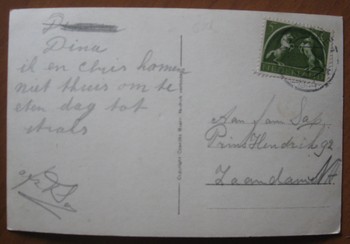 Dina
ik en Chris komen
niet thuis om te
eten dag tot
straks
Aan Jan Sax
Prins Hendrik 92
Zaandam